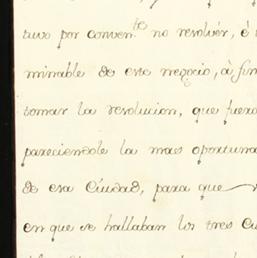 tuvo por conven.te no resolver, é
minable de este negocio, à fin
tomar la resolucion, que fuera
pareciendole la mas oportuna
de esa Ciudad, para que
en que se hallaban los tres Cu